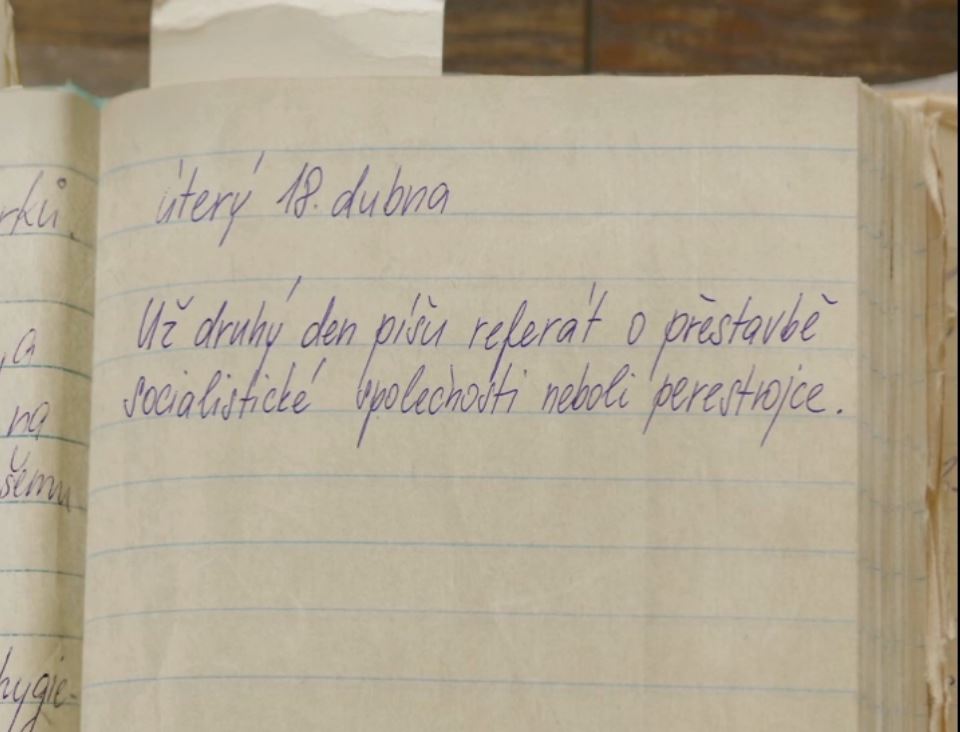 rků.
, a
na
šemu
hygie-
úterý 18. dubna
Už druhý den píšu referát o přestavbě
socialistické společnosti neboli perestrojce.